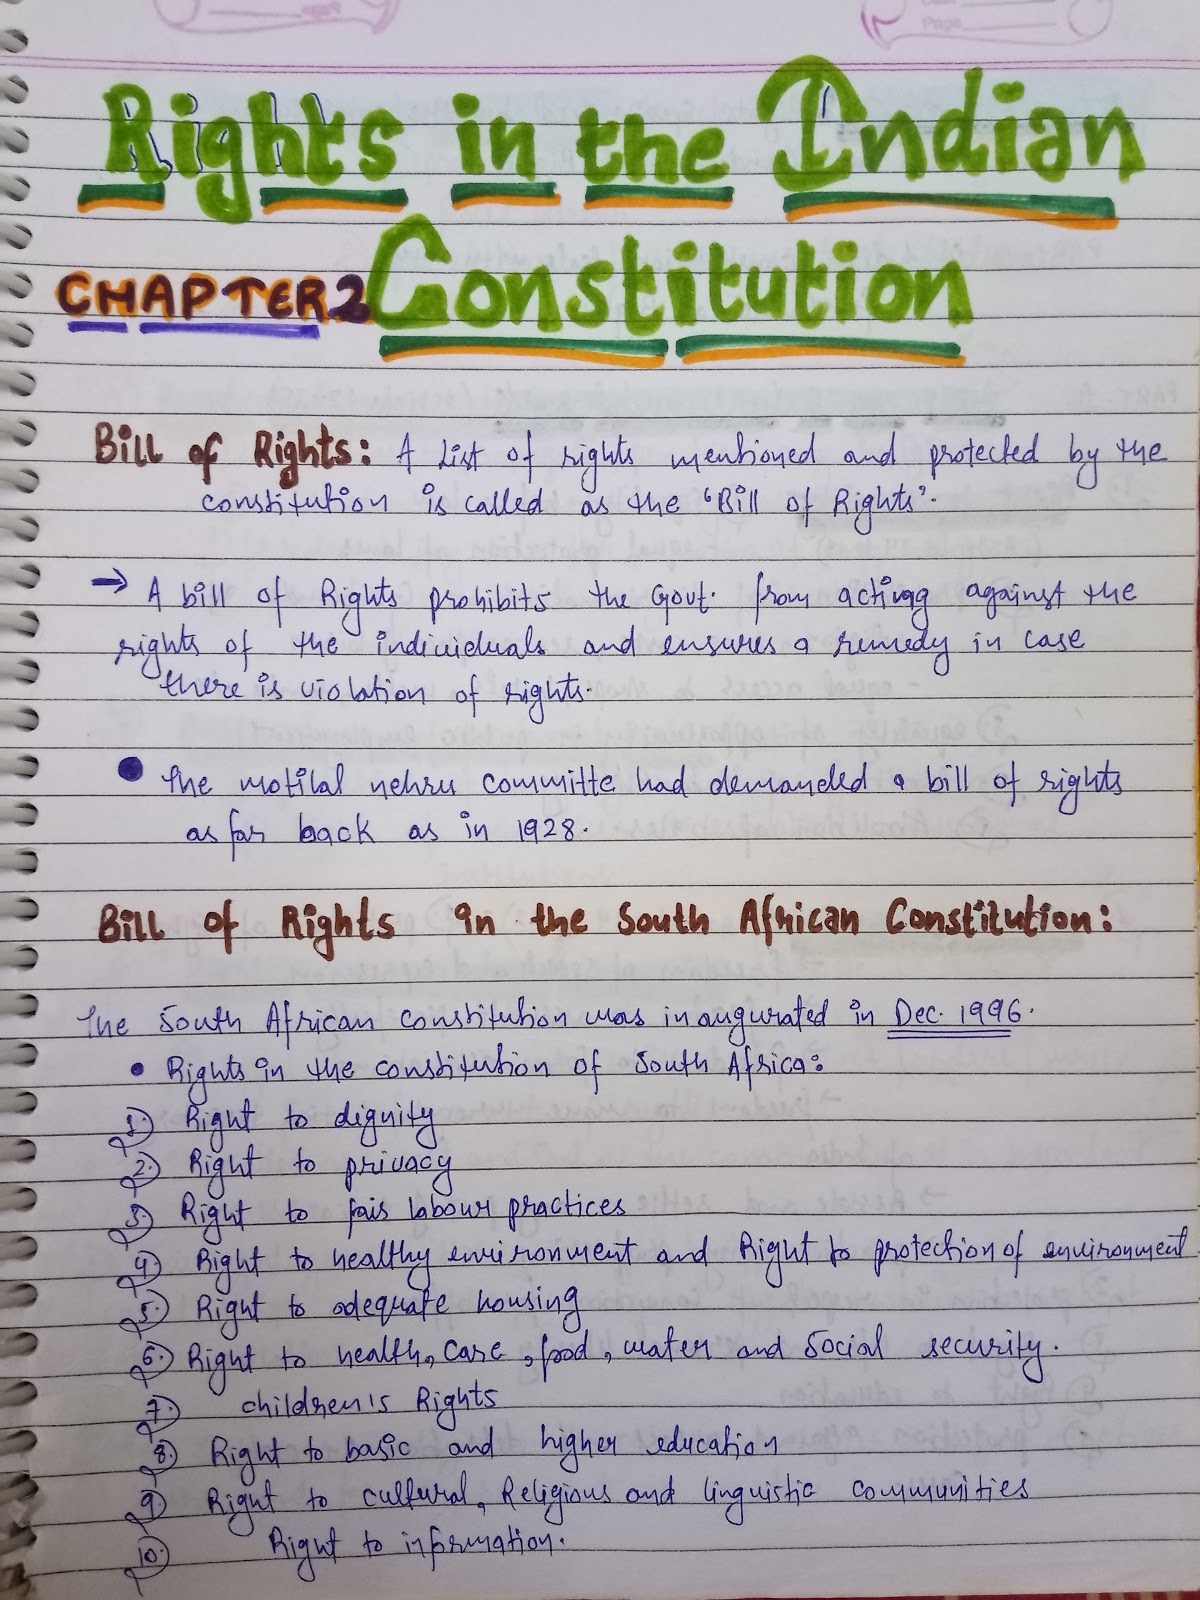 Page
Rights in the Indian
CHAPTER 2 Constitution
Bill of Rights: A List of rights mentioned and protected by the
constitution is called as the 'Bill of Rights'.
→ A bill of Rights prohibits the Govt. from acting against the
rights of the individuals and ensures a remedy in case
there is violation of rights.
• The motilal nehru committe had demanded a bill of rights
as far back as in 1928.
Bill of Rights in the South African Constitution:
The South African constitution was inaugurated in Dec. 1996.
• Rights in the constitution of South Africa:
1) Right to dignity
2) Right to privacy
3) Right to fair labour practices
4) Right to healthy environment and Right to protection of environment
5) Right to adequate housing
6) Right to health, care, food, water and Social security.
7) children's Rights
8) Right to basic and higher education
9) Right to cultural, Religious and linguistic communities
10) Right to information.